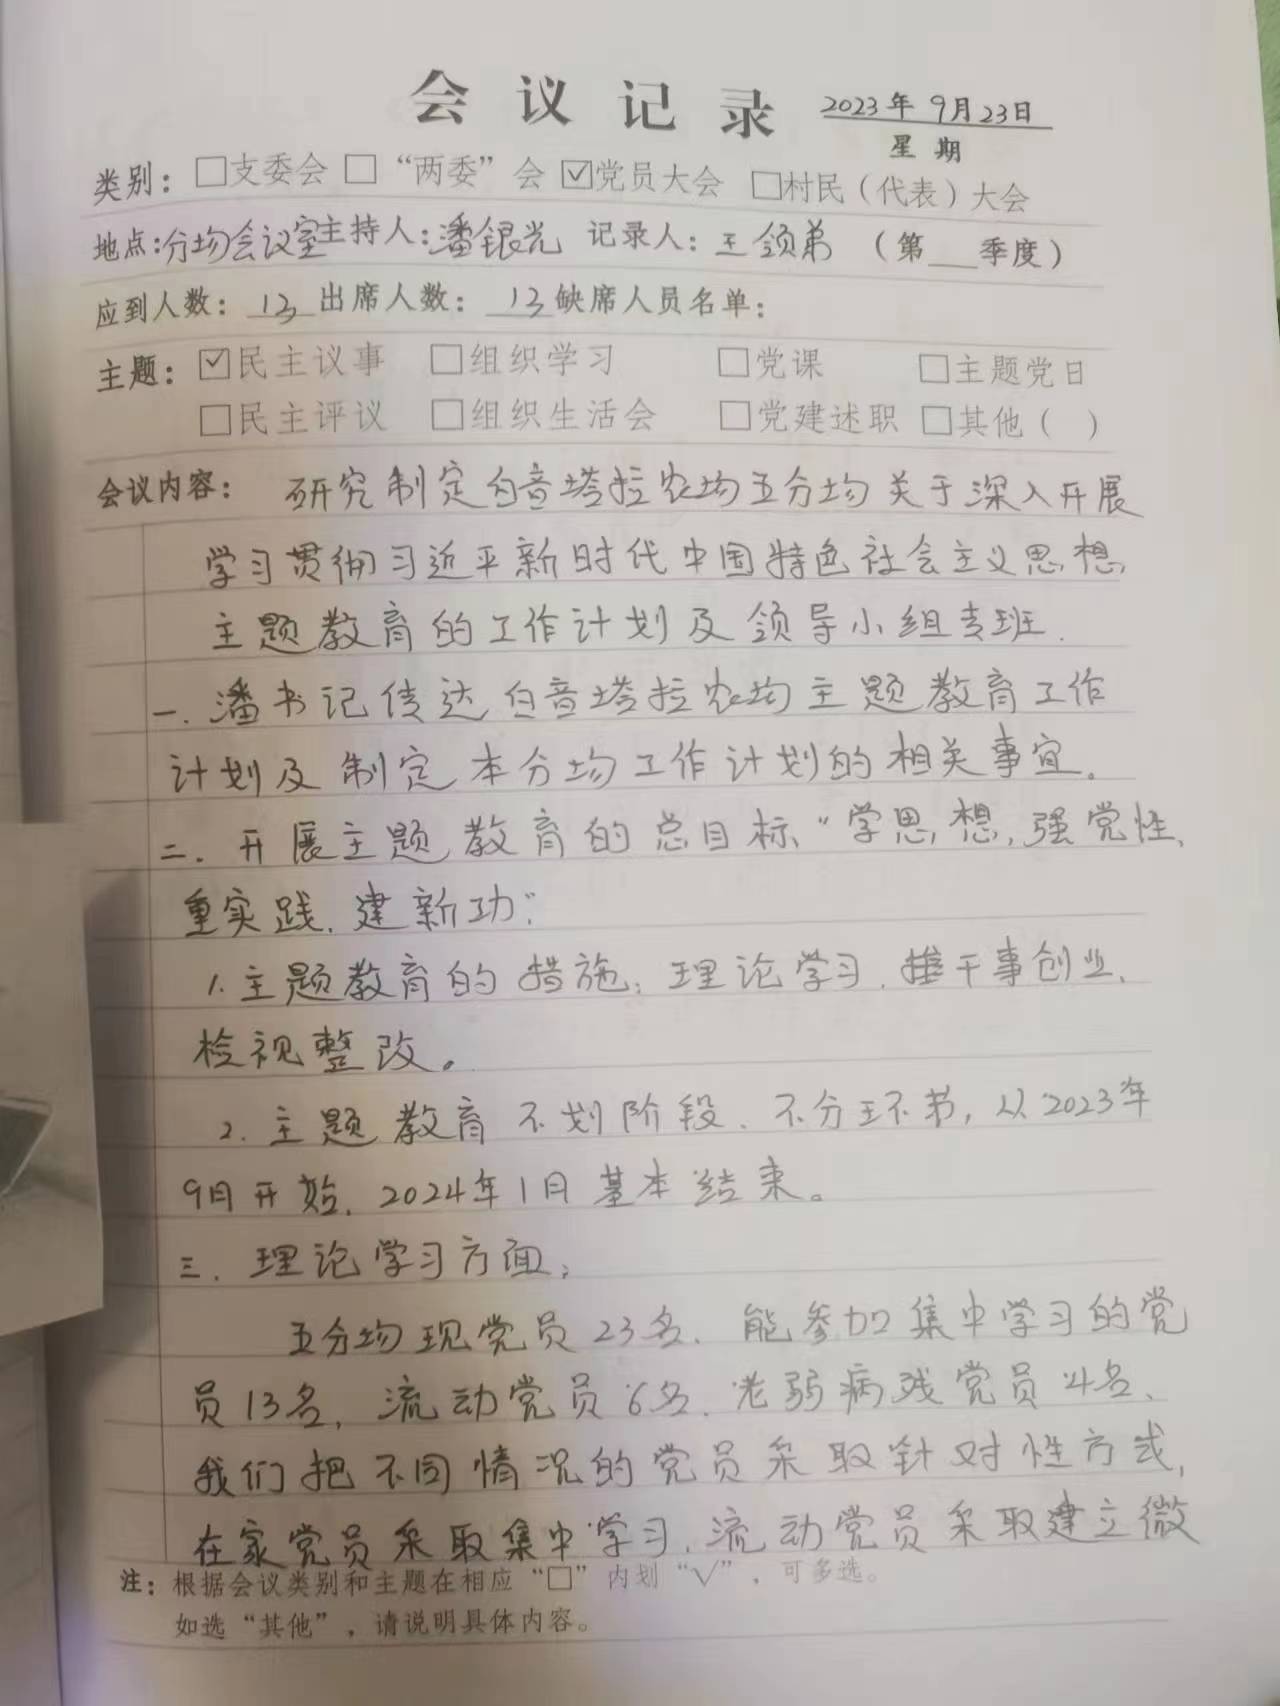 会议记录 2023年9月23日
星期
类别：□支委会 □“两委”会 ☑党员大会 □村民（代表）大会
地点：分场会议室主持人：潘银光 记录人：王领弟（第___季度）
应到人数：13出席人数：13缺席人员名单：
主题：☑民主议事 □组织学习 □党课 □主题党日
□民主评议 □组织生活会 □党建述职 □其他（ ）
会议内容：研究制定白音塔拉农场五分场关于深入开展
学习贯彻习近平新时代中国特色社会主义思想
主题教育的工作计划及领导小组专班.
一.潘书记传达白音塔拉农场主题教育工作
计划及制定本分场工作计划的相关事宜。
二.开展主题教育的总目标“学思想,强党性、
重实践.建新功”.
1.主题教育的措施：理论学习.推干事创业、
检视整改。
2.主题教育不划阶段.不分环节,从2023年
9月开始.2024年1月基本结束。
三.理论学习方面：
五分场现党员23名.能参加集中学习的党
员13名,流动党员6名.老弱病残党员4名、
我们把不同情况的党员采取针对性方式,
在家党员采取集中学习.流动党员采取建立微
注：根据会议类别和主题在相应“□”内划“√”，可多选。
如选“其他”，请说明具体内容。